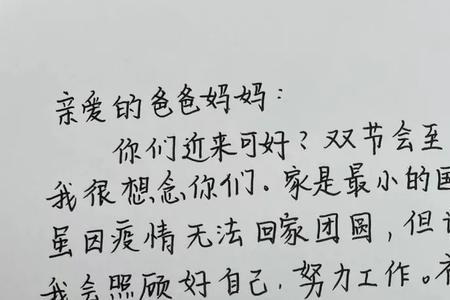 亲爱的爸爸妈妈：
你们近来可好？双节会至
我很想念你们。家是最小的国
虽因疫情无法回家团圆，但
我会照顾好自己，努力工作。